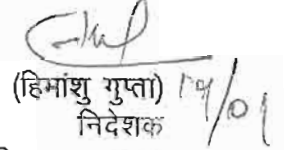 (हिमांशु गुप्ता) 19/01
निदेशक